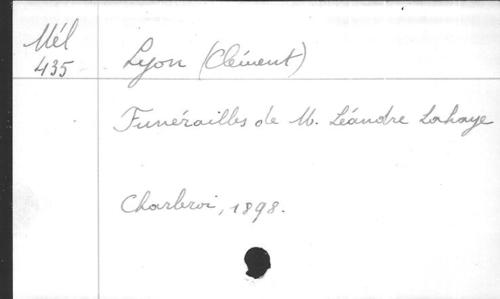 Mél
435
Lyon (Clément)
Funérailles de M. Léandre Lahaye
Charleroi, 1898.